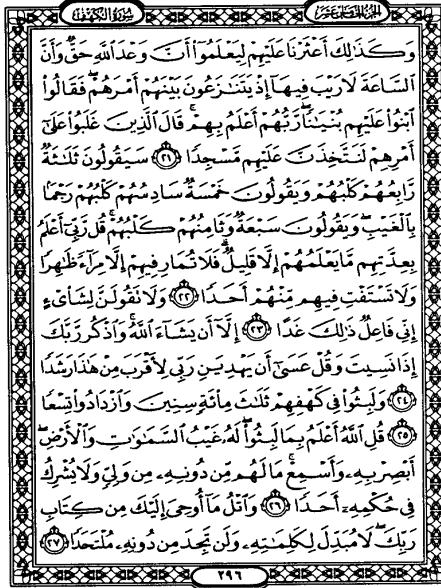 سورة الكهف
الجزء الخامس عشر
وَكَذَٰلِكَ أَعْثَرْنَا عَلَيْهِمْ لِيَعْلَمُوٓا۟ أَنَّ وَعْدَ ٱللَّهِ حَقٌّ وَأَنَّ
ٱلسَّاعَةَ لَا رَيْبَ فِيهَآ إِذْ يَتَنَٰزَعُونَ بَيْنَهُمْ أَمْرَهُمْ ۖ فَقَالُوا۟
ٱبْنُوا۟ عَلَيْهِم بُنْيَٰنًا ۖ رَّبُّهُمْ أَعْلَمُ بِهِمْ ۚ قَالَ ٱلَّذِينَ غَلَبُوا۟ عَلَىٰٓ
أَمْرِهِمْ لَنَتَّخِذَنَّ عَلَيْهِم مَّسْجِدًا ٢١ سَيَقُولُونَ ثَلَٰثَةٌ
رَّابِعُهُمْ كَلْبُهُمْ وَيَقُولُونَ خَمْسَةٌ سَادِسُهُمْ كَلْبُهُمْ رَجْمًۢا
بِٱلْغَيْبِ ۖ وَيَقُولُونَ سَبْعَةٌ وَثَامِنُهُمْ كَلْبُهُمْ ۚ قُل رَّبِّىٓ أَعْلَمُ
بِعِدَّتِهِم مَّا يَعْلَمُهُمْ إِلَّا قَلِيلٌ ۗ فَلَا تُمَارِ فِيهِمْ إِلَّا مِرَآءً ظَٰهِرًا
وَلَا تَسْتَفْتِ فِيهِم مِّنْهُمْ أَحَدًا ٢٢ وَلَا تَقُولَنَّ لِشَا۟ىْءٍ
إِنِّى فَاعِلٌ ذَٰلِكَ غَدًا ٢٣ إِلَّآ أَن يَشَآءَ ٱللَّهُ ۚ وَٱذْكُر رَّبَّكَ
إِذَا نَسِيتَ وَقُلْ عَسَىٰٓ أَن يَهْدِيَنِ رَبِّى لِأَقْرَبَ مِنْ هَٰذَا رَشَدًا
٢٤ وَلَبِثُوا۟ فِى كَهْفِهِمْ ثَلَٰثَ مِا۟ئَةٍ سِنِينَ وَٱزْدَادُوا۟ تِسْعًا
٢٥ قُلِ ٱللَّهُ أَعْلَمُ بِمَا لَبِثُوا۟ ۖ لَهُۥ غَيْبُ ٱلسَّمَٰوَٰتِ وَٱلْأَرْضِ ۖ
أَبْصِرْ بِهِۦ وَأَسْمِعْ ۚ مَا لَهُم مِّن دُونِهِۦ مِن وَلِىٍّ وَلَا يُشْرِكُ
فِى حُكْمِهِۦٓ أَحَدًا ٢٦ وَٱتْلُ مَآ أُوحِىَ إِلَيْكَ مِن كِتَابِ
رَبِّكَ ۖ لَا مُبَدِّلَ لِكَلِمَٰتِهِۦ وَلَن تَجِدَ مِن دُونِهِۦ مُلْتَحَدًا ٢٧
٢٩٦